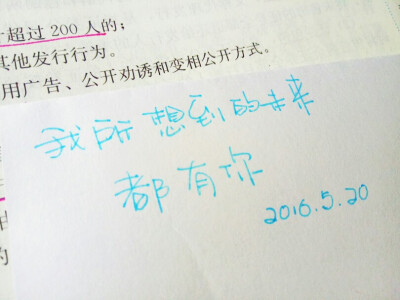 超过 200 人的；
其他发行行为。
用广告、公开劝诱和变相公开方式。
我所想到的未来
都有你
2016.5.20
的